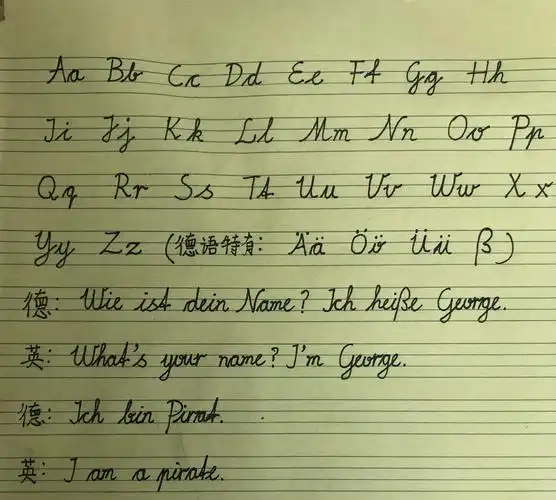 Aa Bb Cc Dd Ee Ff Gg Hh
Ii Jj Kk Ll Mm Nn Oo Pp
Qq Rr Ss Tt Uu Vv Ww Xx
Yy Zz (德语特有: Ää Öö Üü ß)
德: Wie ist dein Name? Ich heiße George.
英: What's your name? I'm George.
德: Ich bin Pirat.
英: I am a pirate.